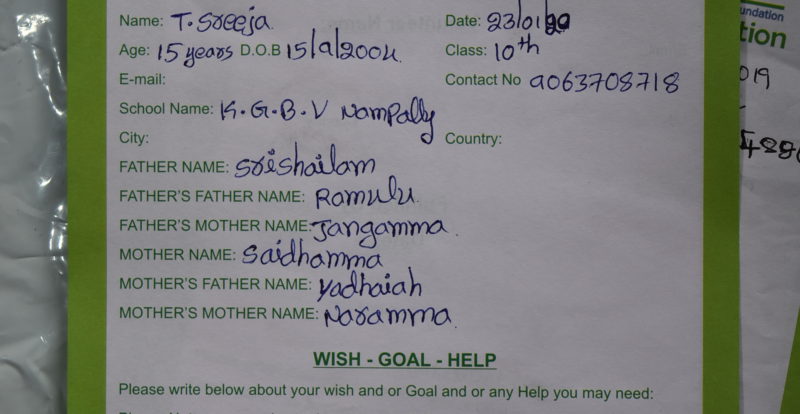 Name: T. Sreeja Date: 23/01/20
Age: 15 years D.O.B 15/9/2004
Class: 10th
E-mail:
Contact No 9063708718
School Name: K.G.B.V Nampally
City: Country:
FATHER NAME: Srishailam
FATHER'S FATHER NAME: Ramulu.
FATHER'S MOTHER NAME: Jangamma.
MOTHER NAME: Saidhamma
MOTHER'S FATHER NAME: Yadhaiah
MOTHER'S MOTHER NAME: Naramma.
WISH - GOAL - HELP
Please write below about your wish and or Goal and or any Help you may need:
undation
tion
019